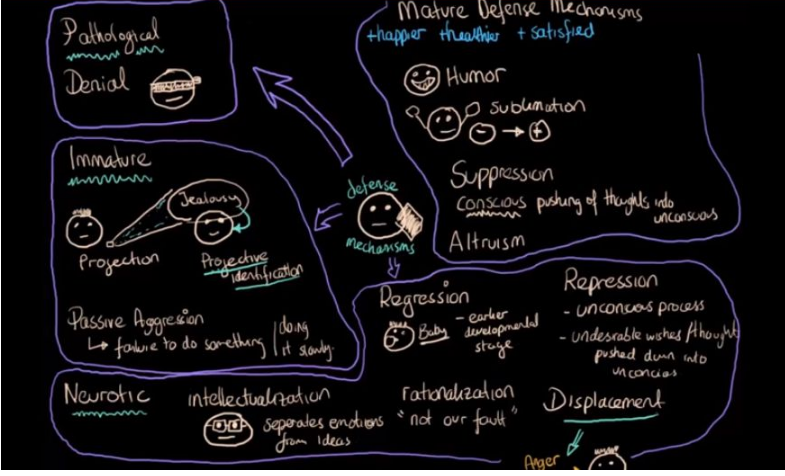 Pathological
Denial
Mature Defense Mechanisms
+happier +healthier +satisfied
Humor
Sublimation
- → +
Suppression
conscious pushing of thoughts into
unconscious
Altruism
Immature
Jealousy
Projection
Projective
identification
Passive Aggression
↳ failure to do something / doing
it slowly.
defense
mechanisms
Regression
Baby - earlier
developmental
stage
Repression
- unconcious process
- undesirable wishes / thought
pushed down into
unconcios
Neurotic
intellectualization
seperates emotions
from ideas
rationalization
"not our fault"
Displacement
Anger